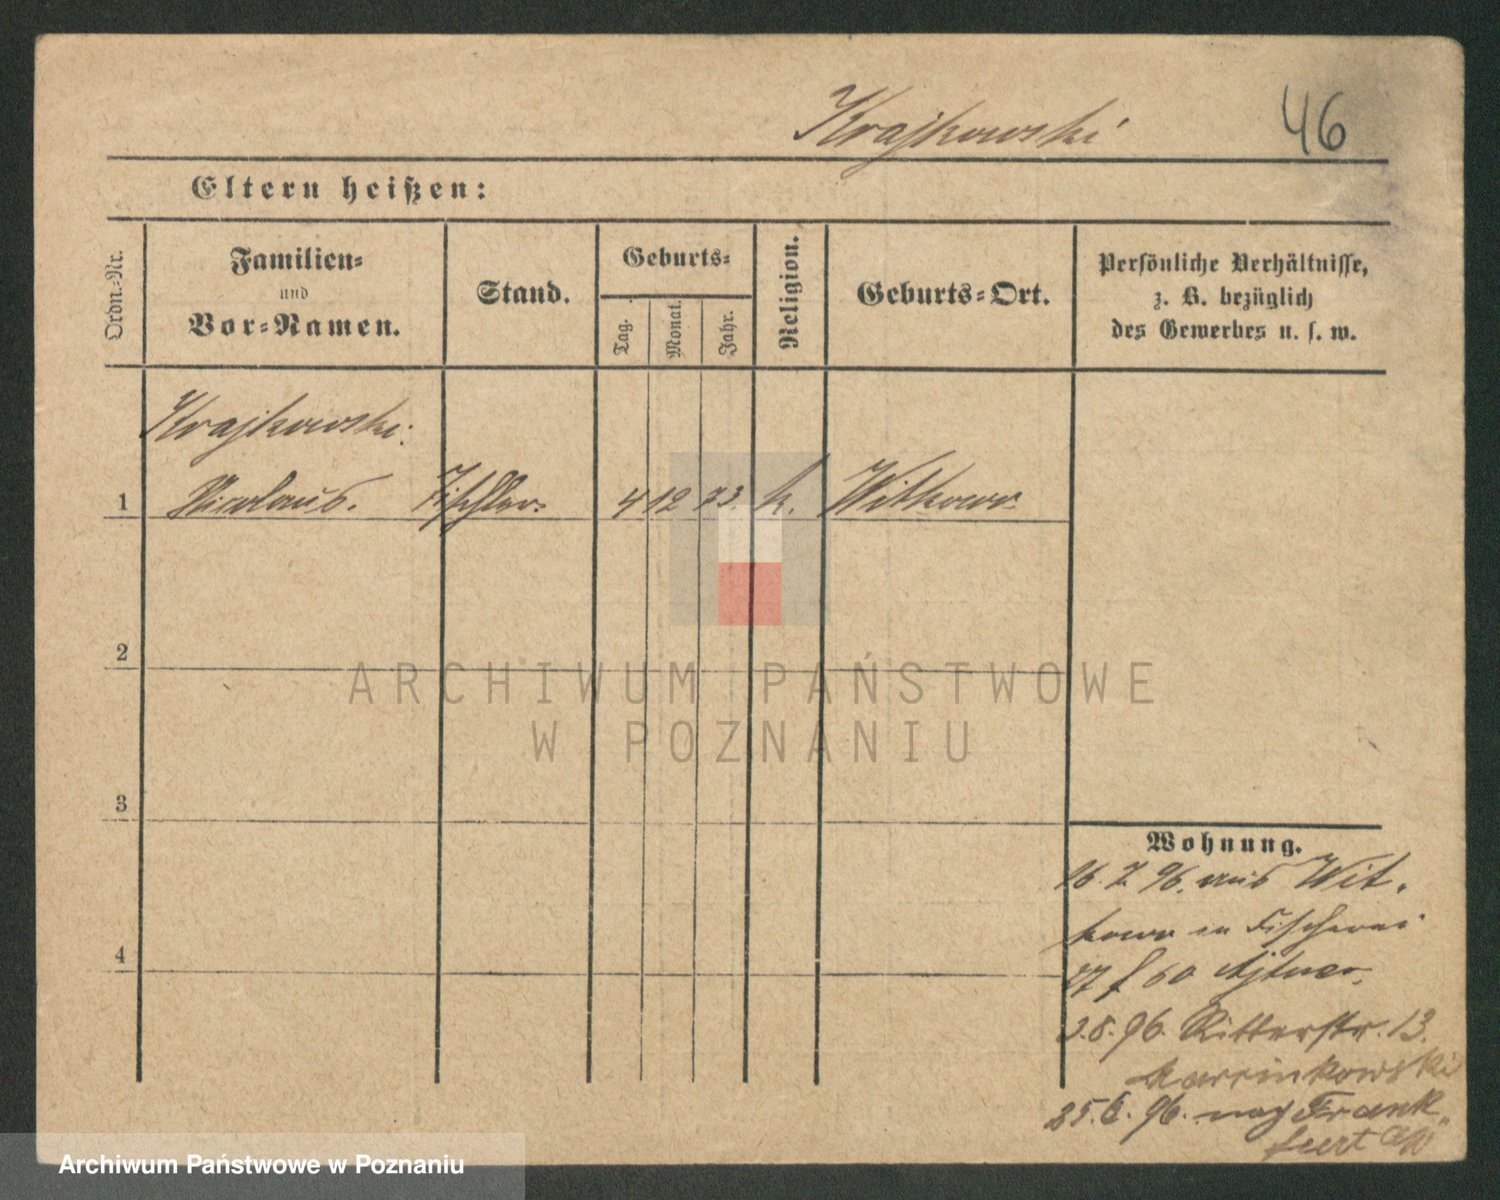 Krajkowski
46
Eltern heißen:
Ordn.-Nr.
Familien-
und
Vor-Namen.
Stand.
Geburts-
Tag.
Monat.
Jahr.
Religion.
Geburts-Ort.
Persönliche Verhältnisse,
z. B. bezüglich
des Gewerbes u. s. w.
Krajkowski.
1 Nicolaus. Tischler. 4 12 73. k. Witkowo.
2
3
4
ARCHIWUM PAŃSTWOWE
W POZNANIU
Wohnung.
16. 7. 96. aus Wit-
kowo in Fischerei
27
3.8.96. Ritterstr. 13.
25. 96. nach Frank-
furt a/O
Archiwum Państwowe w Poznaniu